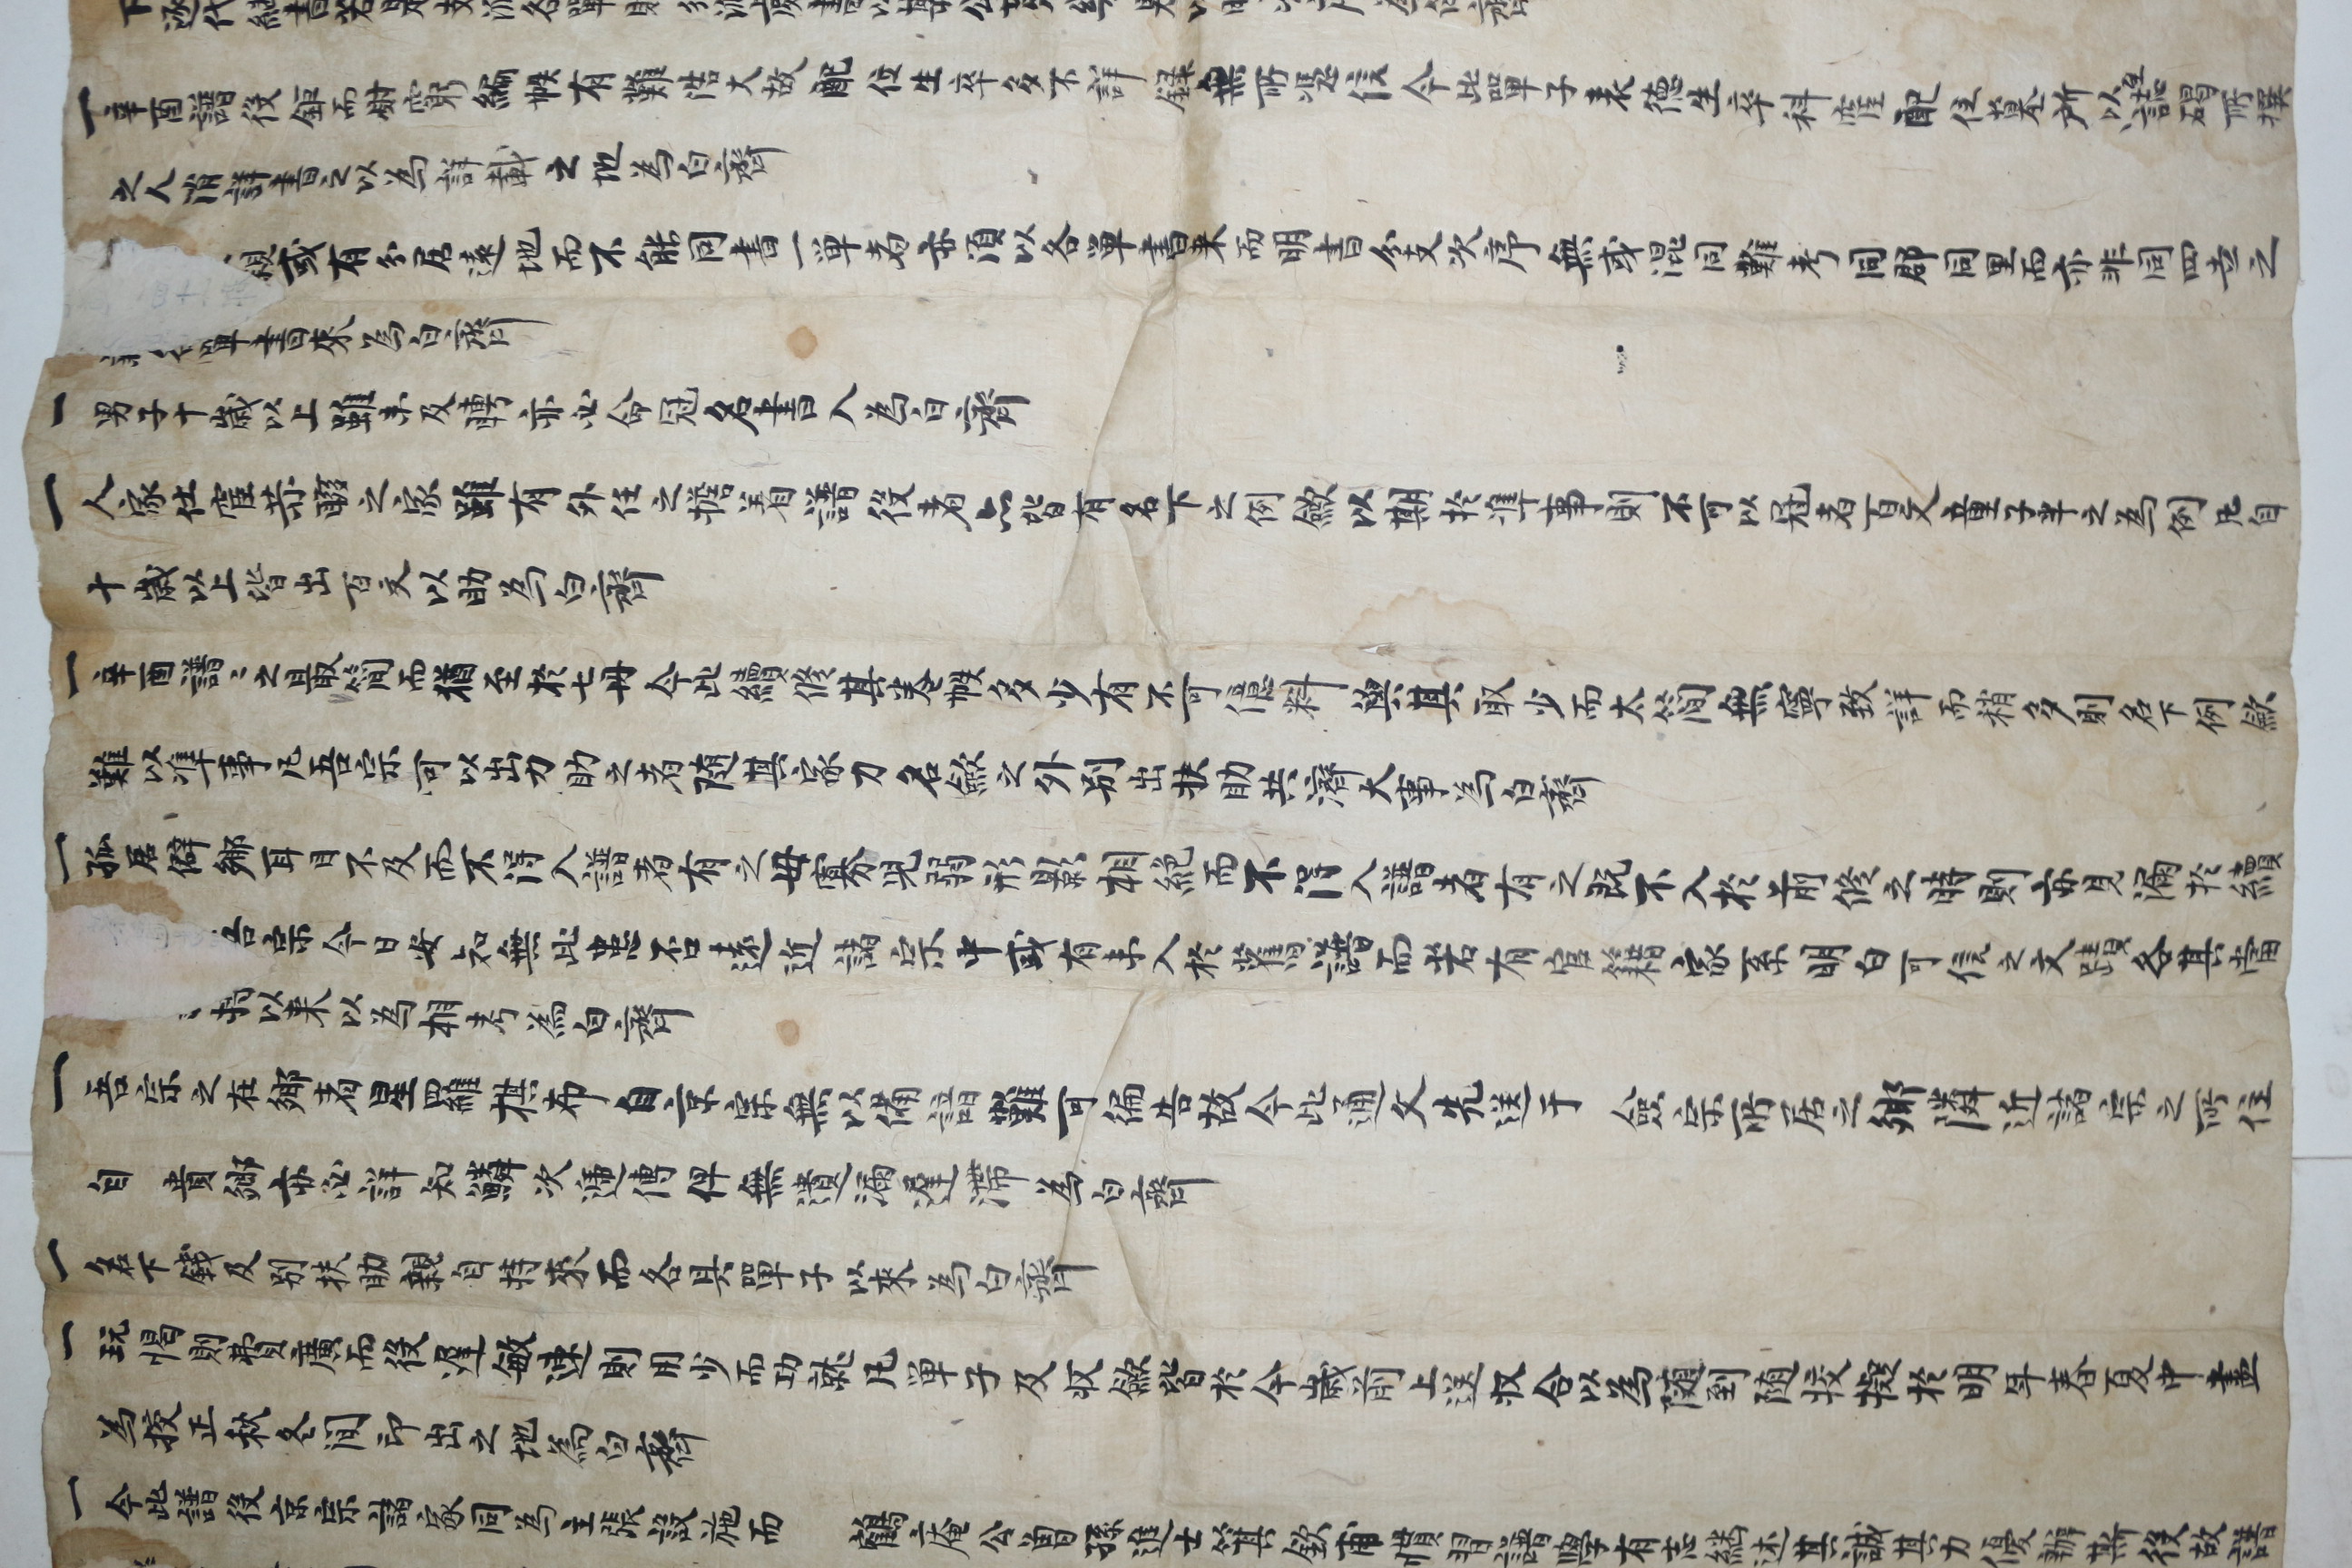 下逐代繼書若是支派各單則分派處書以
一辛酉譜役鉅而財窮編帙有難浩大故配位生卒多不詳錄無所憑信今此單子表德生卒科宦配位墓所以至誌碣所撰
之人消詳書之以為詳載之地為白齊
親或有分居遠地而不能同書一單者亦須以各單書來而明書分支次序無或混同難考同郡同里而亦非同四世之
單書來為白齊
一男子十歲以上雖未及聘亦必命冠名書入為白齊
一人家仕宦崇顯之家雖有外任之擔着譜役者亦皆有名下之例斂以期於準事則不可以冠者百文童子半之為例凡自
十歲以上皆出百文以助為白齊
一辛酉譜〻之最簡而猶至於七冊今此續修其卷帙多少有不可億料與其取少而太簡無寧致詳而稍多則名下例斂
難以準事凡吾宗可以出力助之者隨其家力名斂之外別出扶助共濟大事為白齊
一孤居僻鄉耳目不及而不得入譜者有之母寡兒弱形影相絶而不得入譜者有之旣不入於前修之時則亦見漏於續
吾宗今日安知無此患否遠近諸宗中或有未入於舊譜而若有官籍家系明白可信之文蹟各其當
以來以為相考為白齊
一吾宗之在鄉者星羅棋布自京宗無以備諳難可徧告故今此通文先送于 僉宗所居之鄉隣近諸宗之所住
自 貴鄉亦必詳知鱗次遞傳俾無遺漏遲滯為白齊
一名下錢及別扶助親自持來而各具單子以來為白齊
一玩愒則費廣而役遲敏速則用少而功就凡單子及收斂皆於今歲前上送收合以為隨到隨校擬於明年春夏中盡
為校正秋冬間印出之地為白齊
一今此譜役京宗諸家同為主張設施而 鶴庵公胄孫進士箕欽甫慣習譜學有志繼述其誠其力優辦斯役故譜